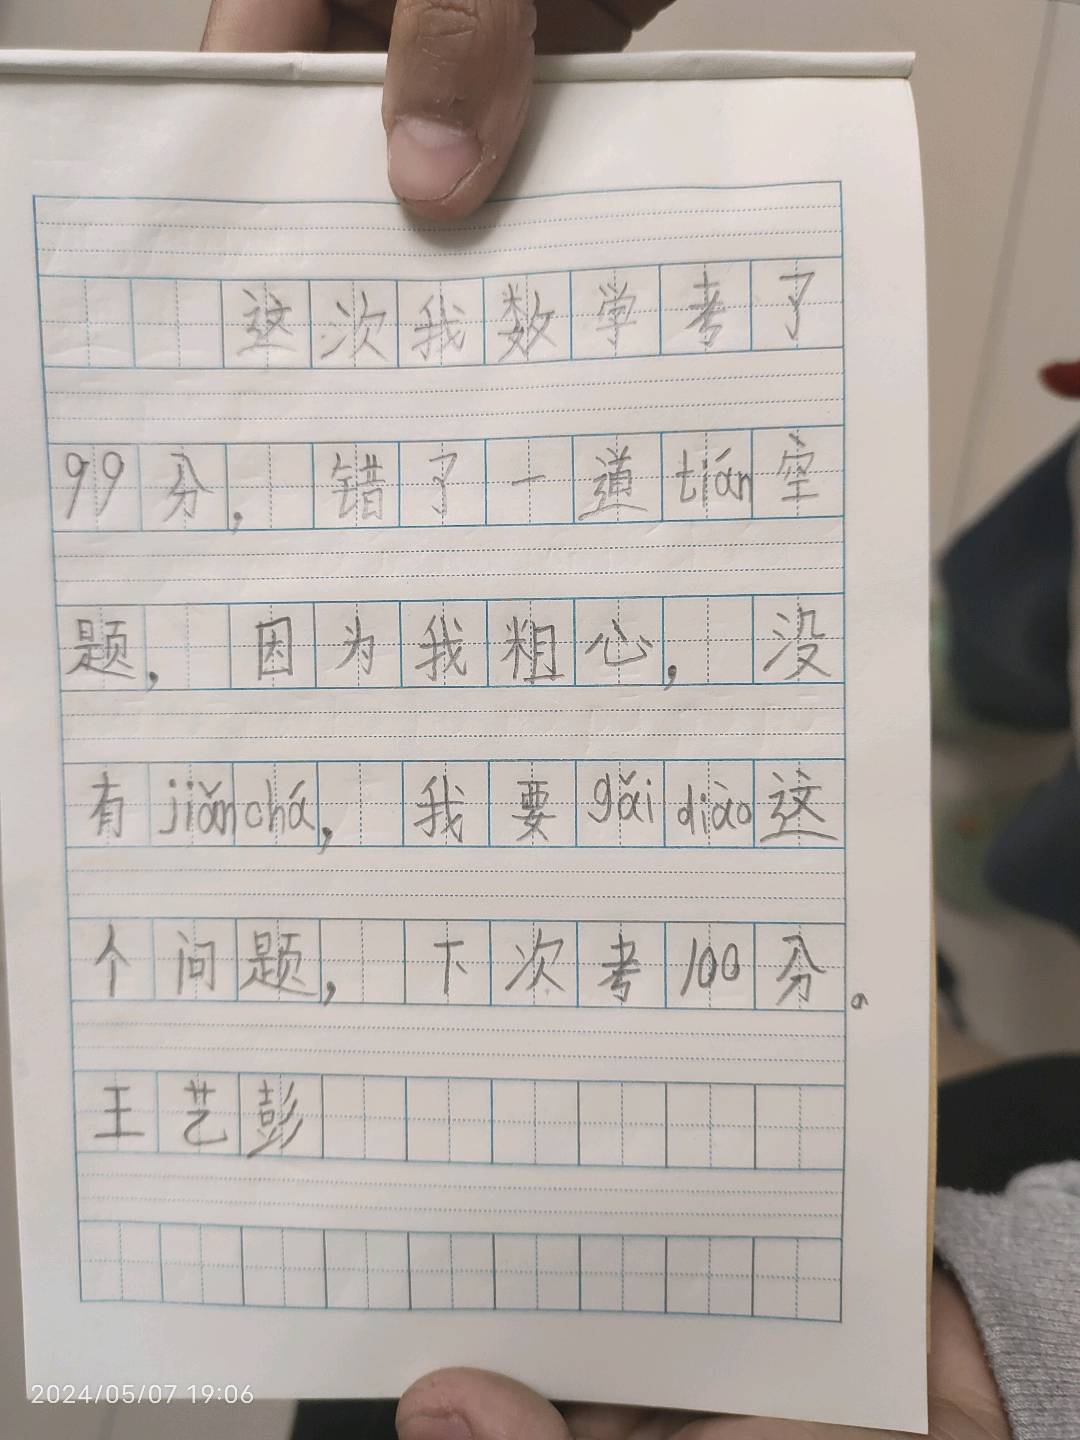 这次我数学考了
99分，错了一道tián空
题，因为我粗心，没
有jiǎnchá，我要gǎidiào这
个问题，下次考100分。
王艺彭
2024/05/07 19:06